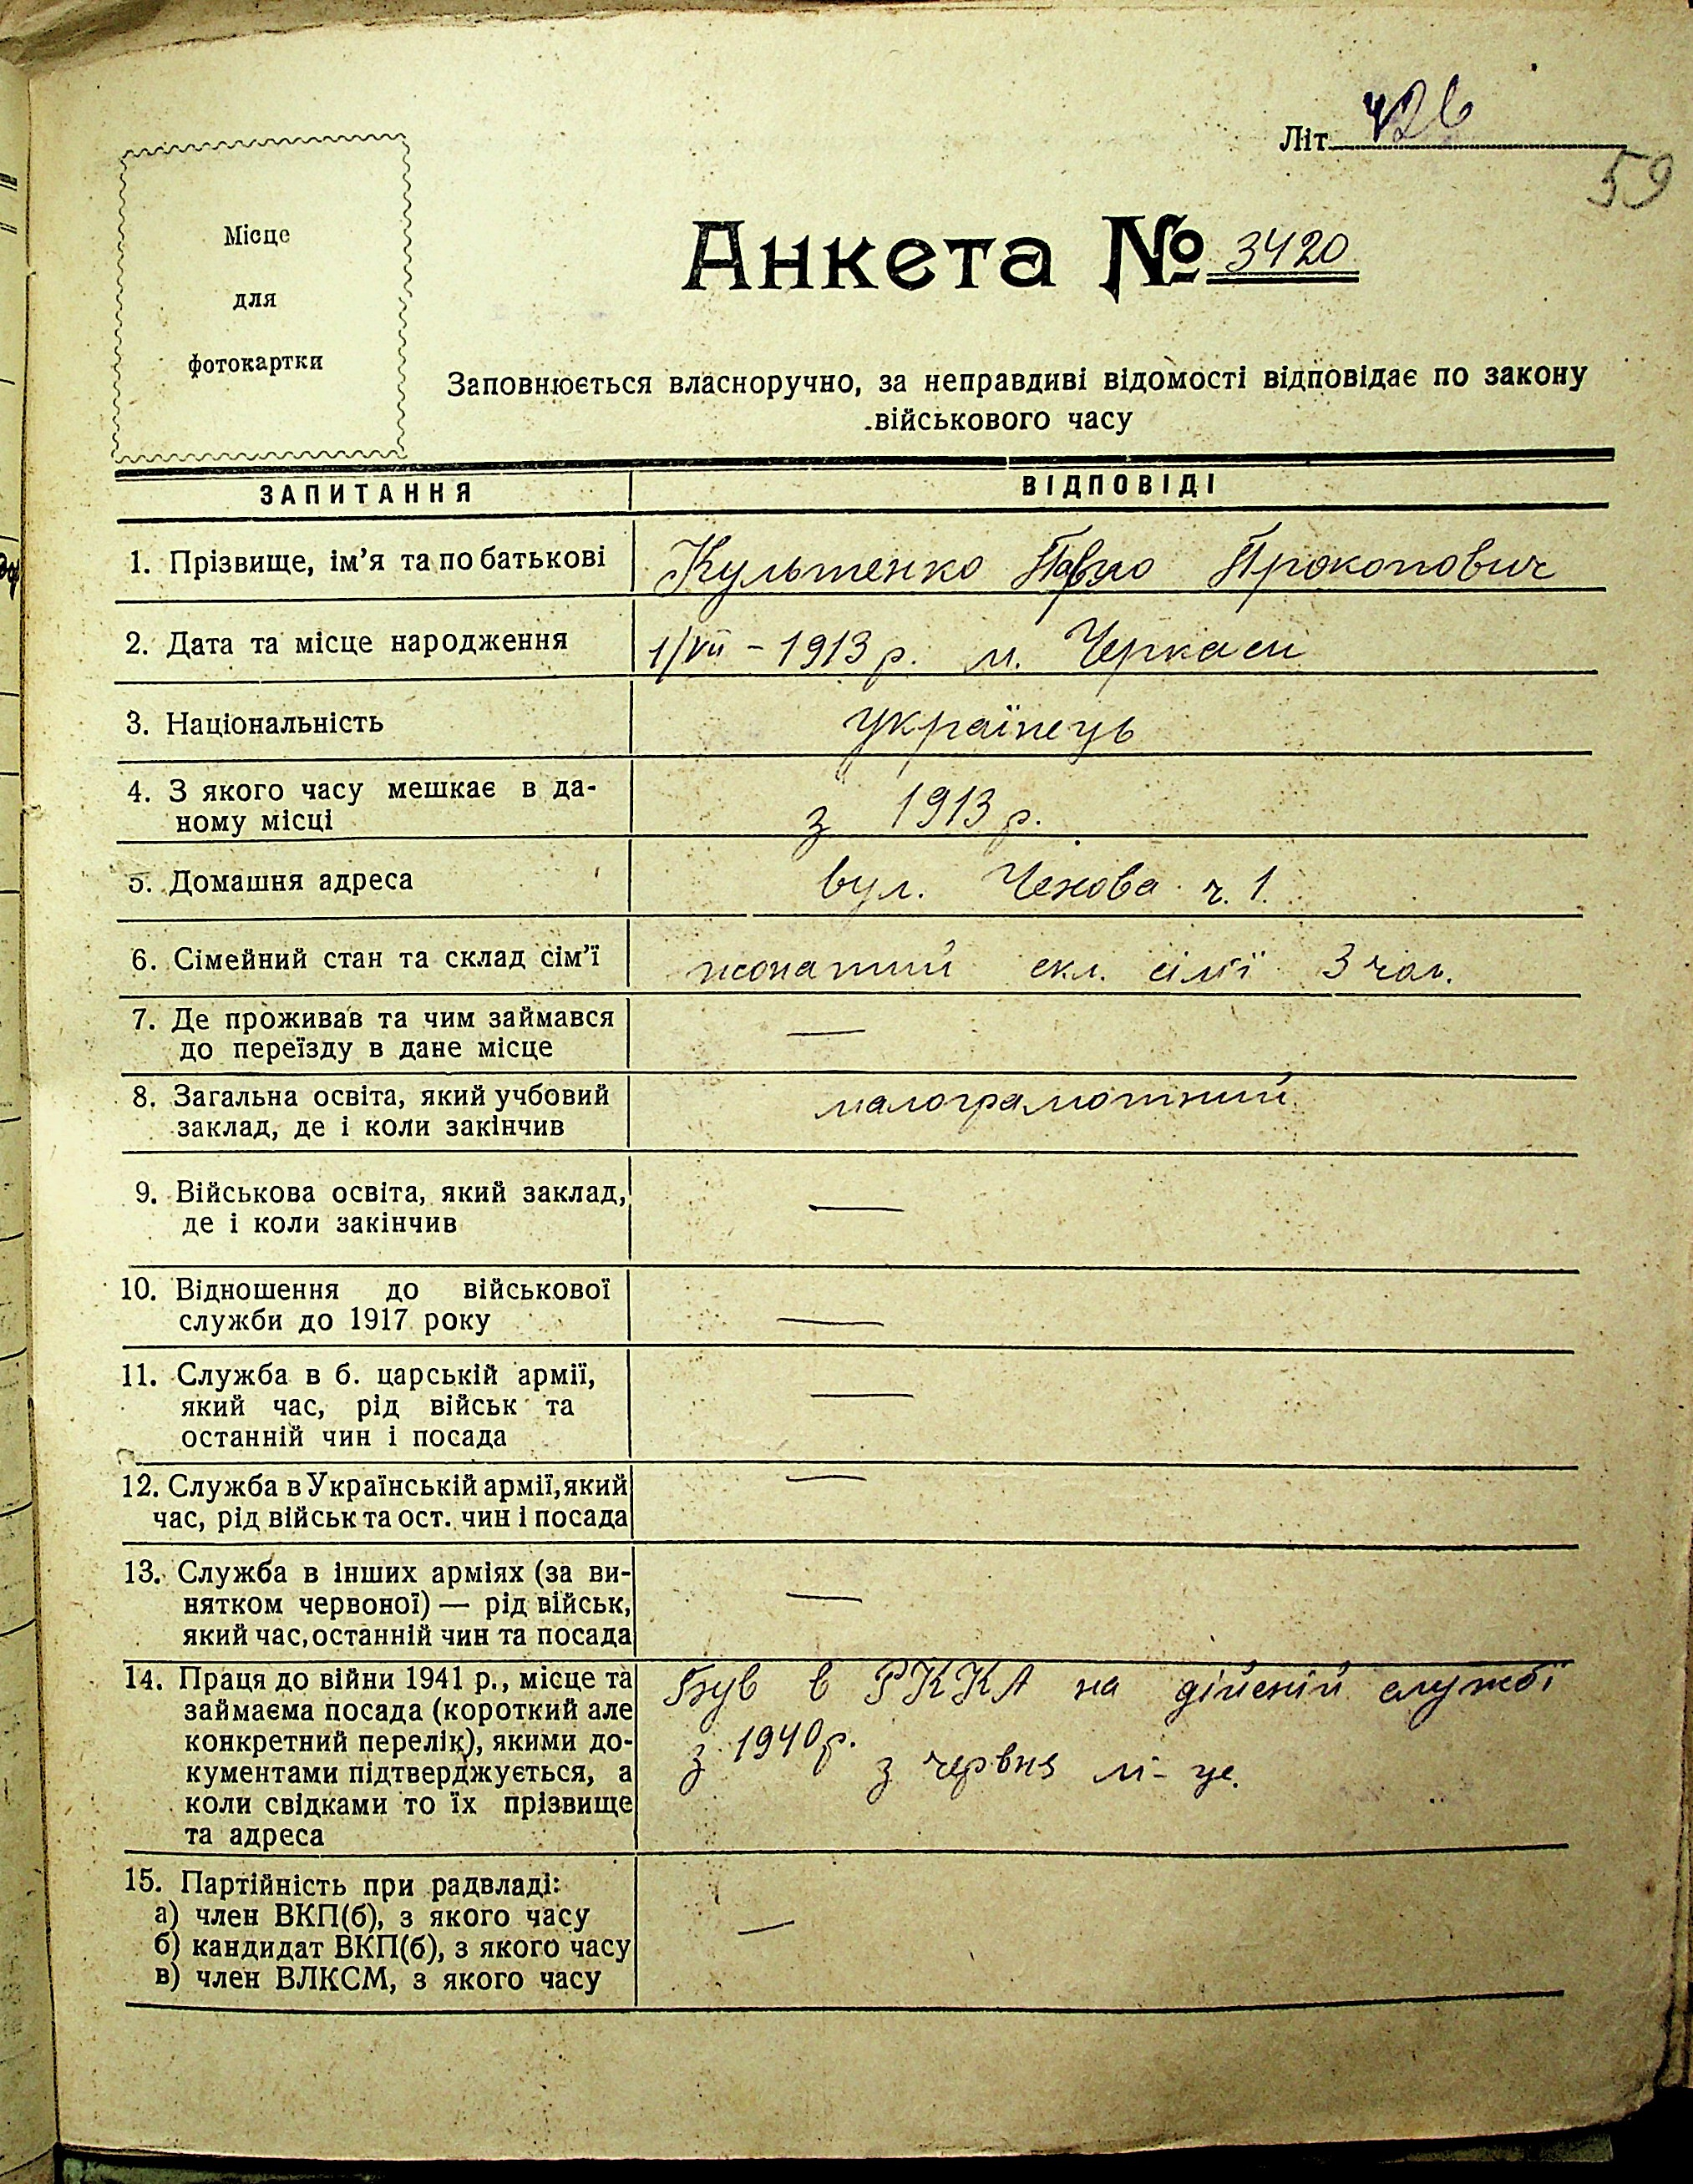 Літ. 426
59
Місце
для
фотокартки
Анкета № 3420
Заповнюється власноручно, за неправдиві відомості відповідає по закону
військового часу
ЗАПИТАННЯ ВІДПОВІДІ
1. Прізвище, ім’я та по батькові Культенко Павло Прокопович
2. Дата та місце народження 1/VII – 1913 р. м. Черкаси
3. Національність українець
4. З якого часу мешкає в да-
ному місці з 1913 р.
5. Домашня адреса вул. Чехова ч. 1.
6. Сімейний стан та склад сім’ї жонатий скл. сім'ї 3 чол.
7. Де проживав та чим займався
до переїзду в дане місце —
8. Загальна освіта, який учбовий малограмотний
заклад, де і коли закінчив
9. Військова освіта, який заклад, —
де і коли закінчив
10. Відношення до військової
служби до 1917 року —
11. Служба в б. царській армії, —
який час, рід військ та
останній чин і посада
12. Служба в Українській армії, який —
час, рід військ та ост. чин і посада
13. Служба в інших арміях (за ви-
нятком червоної) — рід військ, —
який час, останній чин та посада
14. Праця до війни 1941 р., місце та Був в РККА на дійсній службі
займаєма посада (короткий але
конкретний перелік), якими до- з 1940 р. з червня м-це.
кументами підтверджується, а
коли свідками то їх прізвище
та адреса
15. Партійність при радвладі:
а) член ВКП(б), з якого часу —
б) кандидат ВКП(б), з якого часу
в) член ВЛКСМ, з якого часу